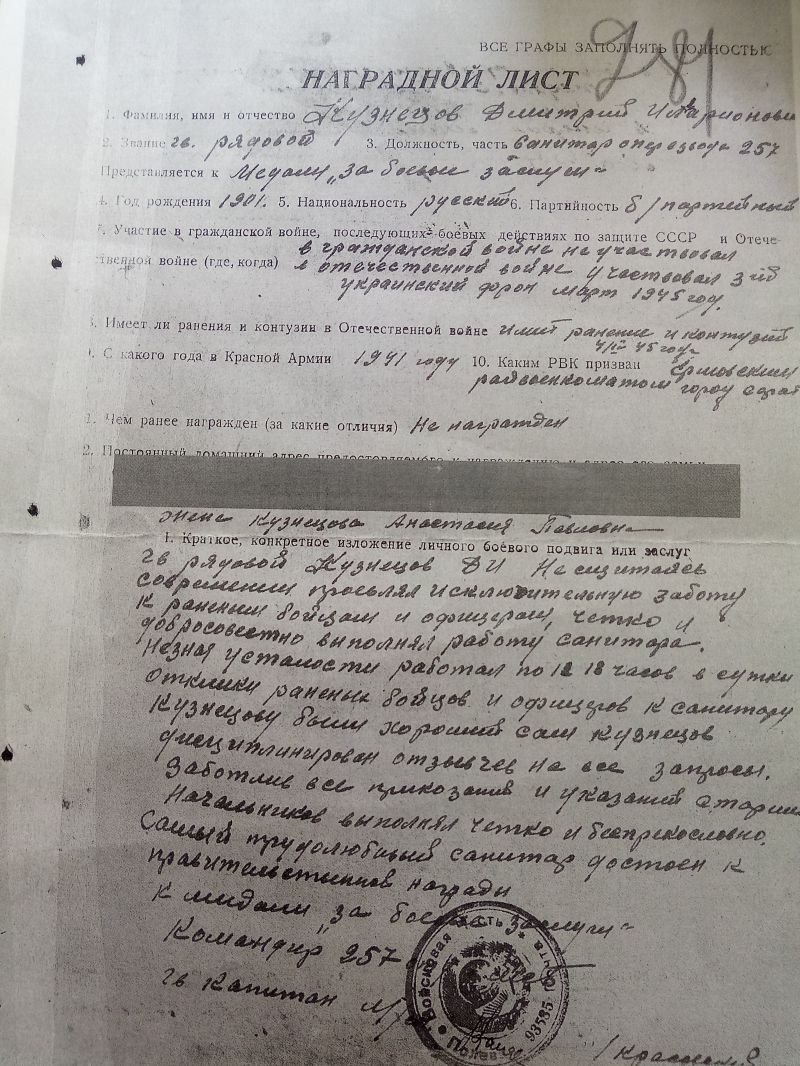 ВСЕ ГРАФЫ ЗАПОЛНЯТЬ ПОЛНОСТЬЮ
НАГРАДНОЙ ЛИСТ
1. Фамилия, имя и отчество Кузнецов Дмитрий Иларионови
2. Звание гв. рядовой 3. Должность, часть санитар опервзвода 257
Представляется к Медали „За боевые заслуги“
4. Год рождения 1901. 5. Национальность русский 6. Партийность б/партейный
7. Участие в гражданской войне, последующих боевых действиях по защите СССР и Отече-
в гражданской войне не участвовал
ственной войне (где, когда) в отечественной войне участвовал 3-й
украинский фрон март 1945 год.
8. Имеет ли ранения и контузии в Отечественной войне имит ранение и контузий
45 году
9. С какого года в Красной Армии 1941 году 10. Каким РВК призван
райвоенкоматом город
1. Чем ранее награжден (за какие отличия) Не награжден
2. Постоянный домашний адрес
жена Кузнецова Анастасия Павловна
I. Краткое, конкретное изложение личного боевого подвига или заслуг
Гв рядовой Кузнецов ДИ Не сщитаясь
современим проевлял исключительную заботу
к раненым бойцам и офицерам, четко и
добросовестно выполнял работу санитара.
Незная усталости работал по 18 часов в сутки
отклики раненых бойцов и офицеров к санитару
Кузнецову были хороший сам Кузнецов
дисциплинирован отзывчев на все запросы.
Заботлив все приказания и указаний старших
Начальников выполнял четко и беспрекословно.
Самый трудолюбивый санитар достоен к
правительственной награды
к мидали „за боевые заслуги“
Командир 257
гв капитан
Войсковая часть
Полевая почта
93585